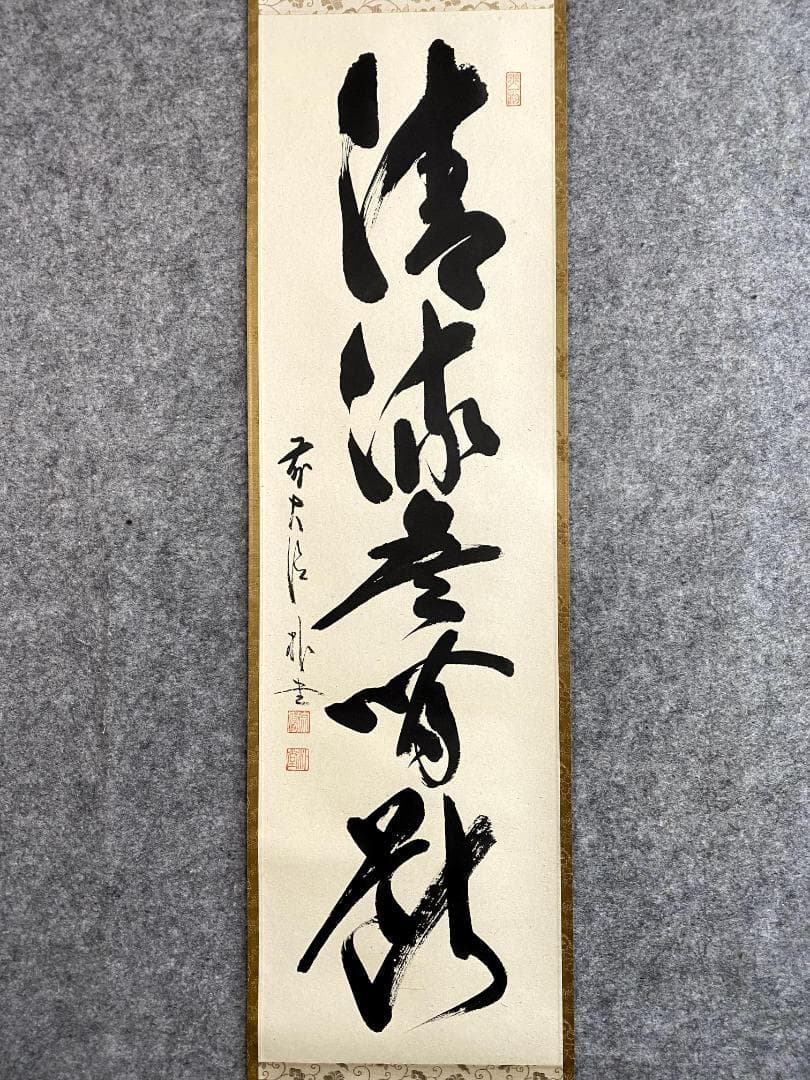 清流無間断
前大徳 書